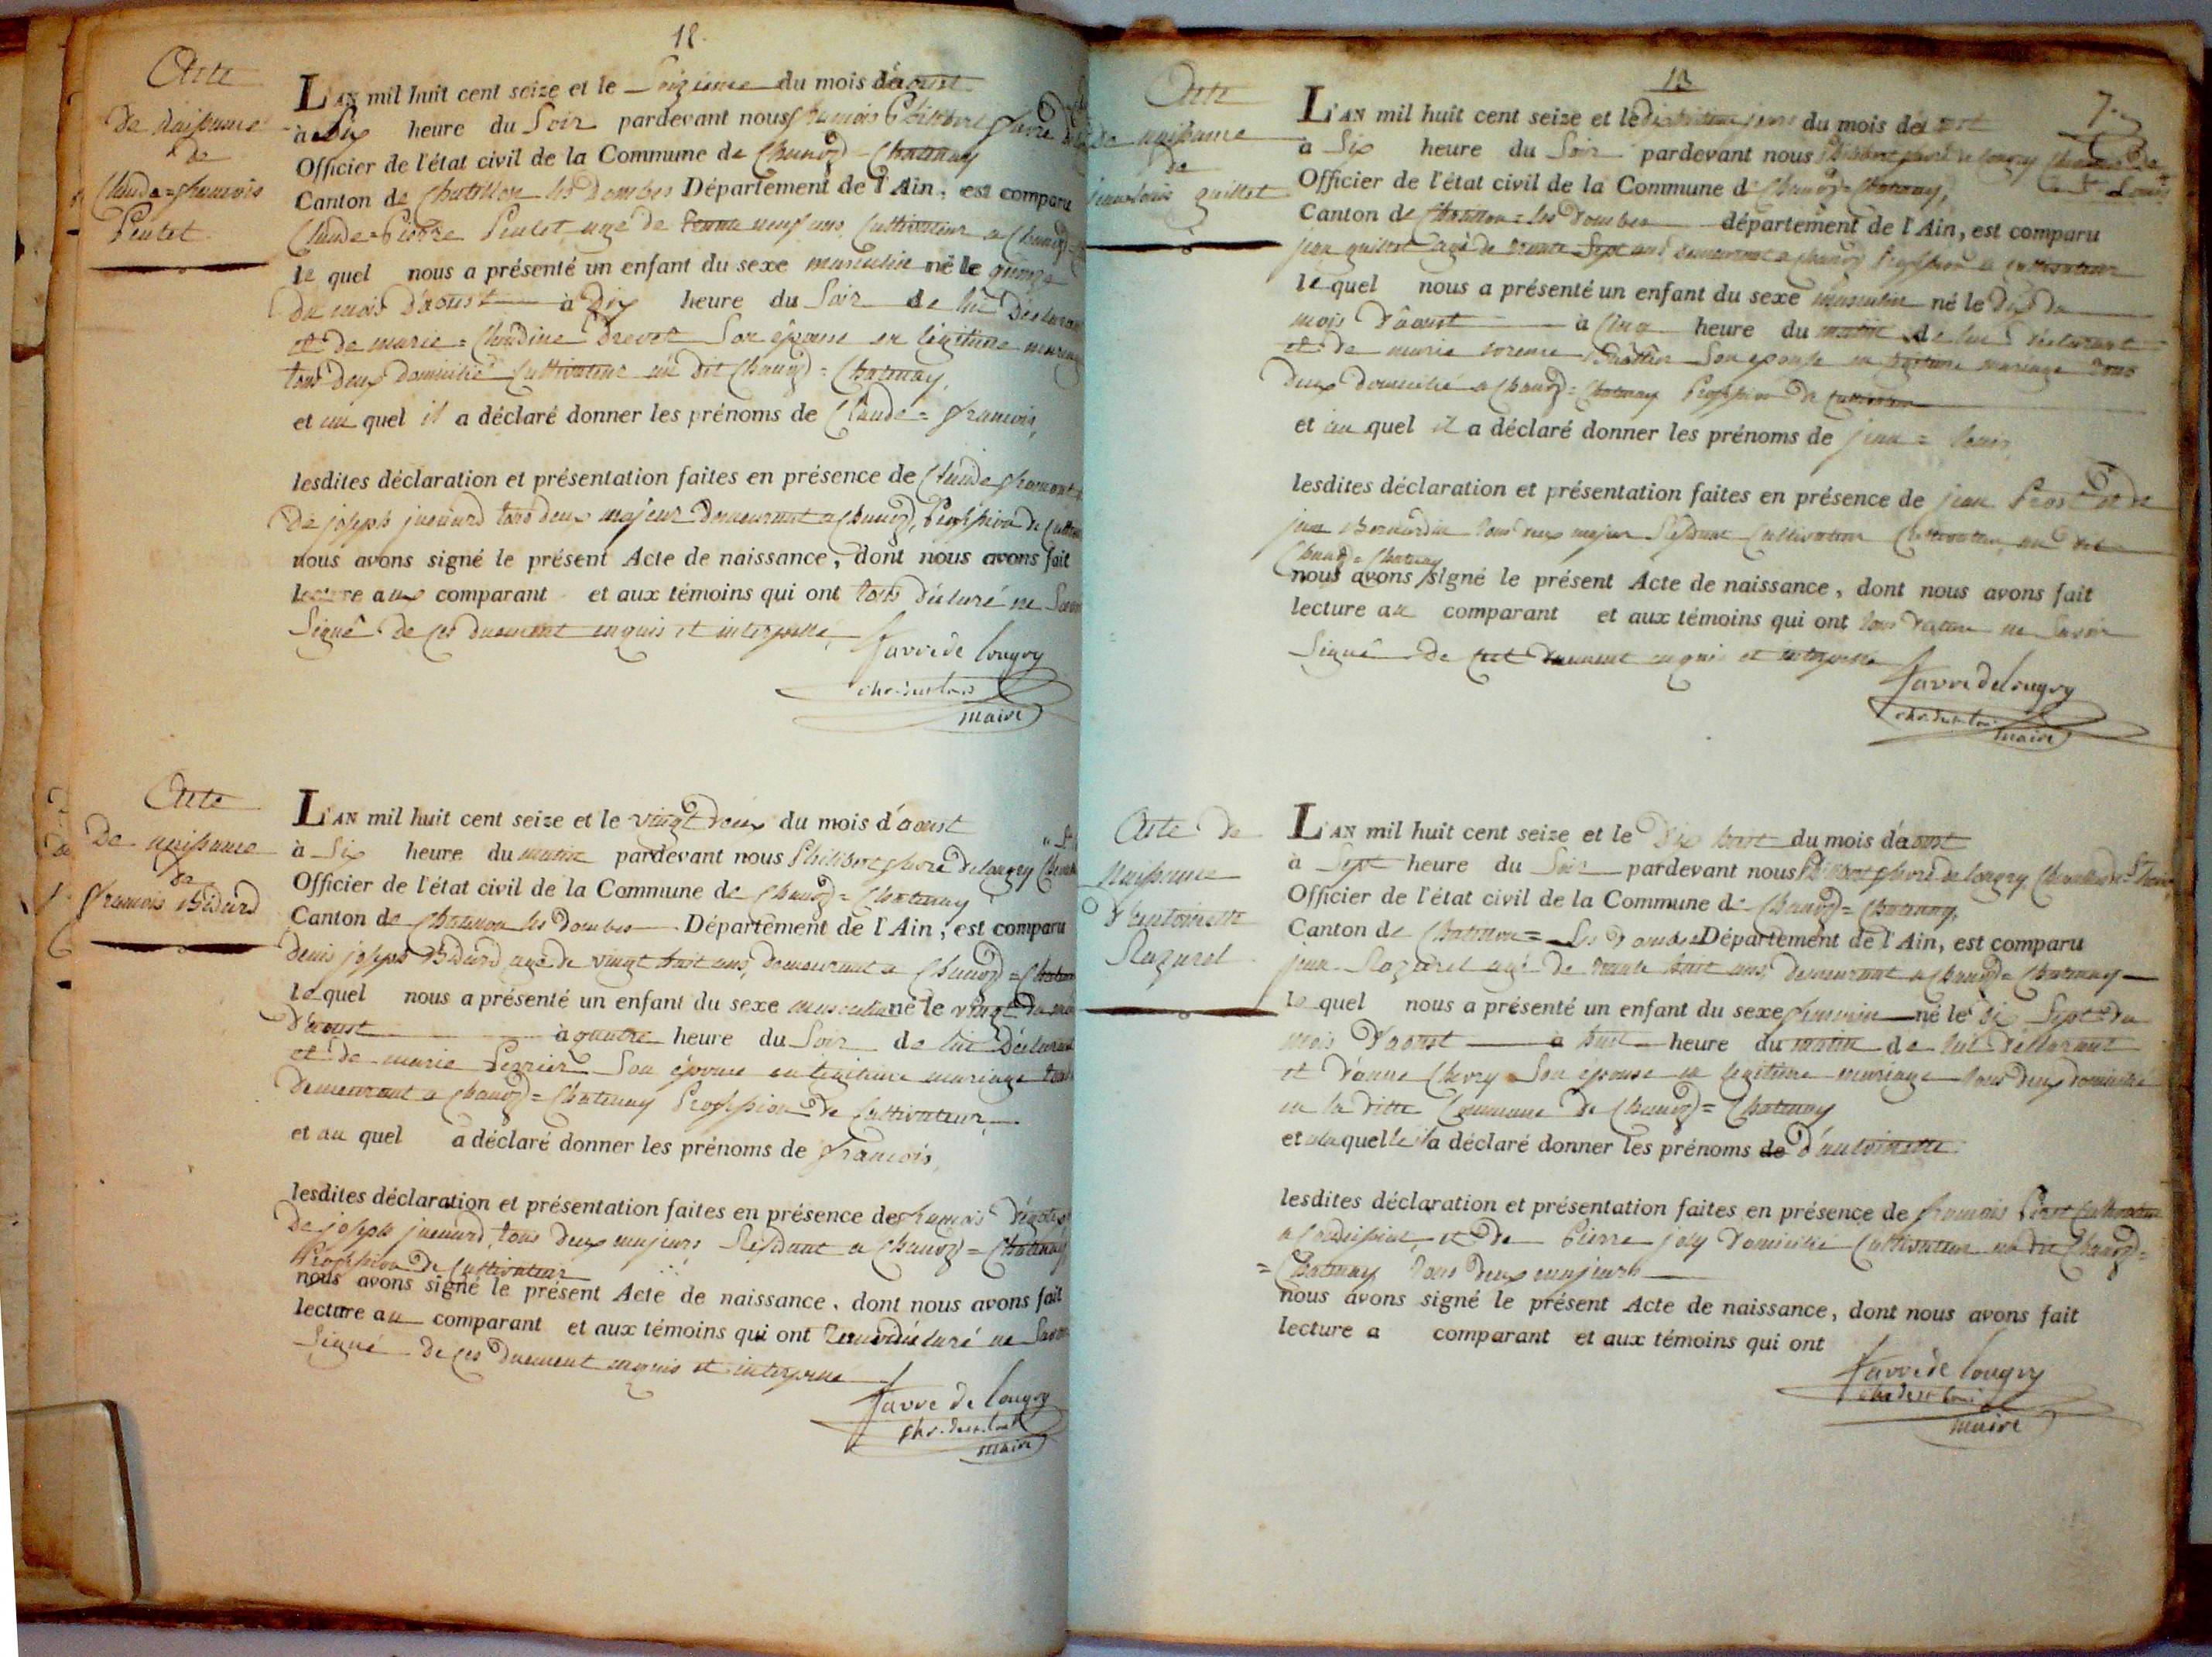 12.
Acte
de Naissance
de
Claude=francois
Peulet
L'AN mil huit cent seize et le Seizieme du mois d'aoust
à Six heure du Soir pardevant nous francois Philibert favre
Officier de l'état civil de la Commune de Chanoz-Chatenay
Canton de Chatillon les Dombes Département de l'Ain, est comparu
Claude=Pierre Peulet age de trente neuf ans, Cultivateur a Chanoz
le quel nous a présenté un enfant du sexe masculin né le quinze
du mois d'aoust à Dix heure du Soir de lui Déclarant
et de marie=Claudine Brevet Son épouse en légitime mariage
tous deux Domicilié Cultivateur au dit Chanoz=Chatenay,
et au quel il a déclaré donner les prénoms de Claude=francois,
lesdites déclaration et présentation faites en présence de Claude
De joseph juenard tous deux majeur Demeurant a Chanoz, Proffession de
nous avons signé le présent Acte de naissance, dont nous avons fait
lecture aux comparant et aux témoins qui ont tous déclaré ne Savoir
Signé de ces duement enquis et interpellé,
favre de longry
chr. de st. louis
maire
Acte
De naissance
de
francois Bidard
L'AN mil huit cent seize et le vingt deux du mois d'aoust
à Six heure du matin pardevant nous Philibert favre de longry
Officier de l'état civil de la Commune de Chanoz=Chatenay
Canton de Chatillon les Dombes Département de l'Ain, est comparu
Denis joseph Bidard age de vingt huit ans, demeurant a Chanoz=
le quel nous a présenté un enfant du sexe masculin né le vingt du mois
D'aoust à quatre heure du Soir de lui Déclarant
et de marie Perrier Son épouse en légitime mariage tous
Demeurant a Chanoz=Chatenay Proffession de Cultivateur,
et au quel a déclaré donner les prénoms de francois,
lesdites déclaration et présentation faites en présence de francois
De joseph juenard, tous deux majeurs Residant a Chanoz=Chatenay
Proffession de Cultivateur
nous avons signé le présent Acte de naissance, dont nous avons fait
lecture au comparant et aux témoins qui ont déclaré ne Savoir
Signé de ces Duement enquis et interpellé
favre de longry
chr. de st. louis
maire
13
7.
Acte
de naissance
de
jean=louis guillet
L'AN mil huit cent seize et le du mois de aoust
à Six heure du Soir pardevant nous Philibert favre de longry Chevalier de
St. Louis
Officier de l'état civil de la Commune de Chanoz=Chatenay,
Canton de Chatillon=les Dombes département de l'Ain, est comparu
jean guillet agé de trente Sept ans demeurant a Chanoz Proffession de Cultivateur
le quel nous a présenté un enfant du sexe masculin né le Dix du
mois d'aoust à Cinq heure du matin de lui déclarant
et de marie Son epouse en legitime mariage tous
Deux domicilié a Chanoz=Chatenay Proffession de Cultivateur
et au quel il a déclaré donner les prénoms de jean=louis,
lesdites déclaration et présentation faites en présence de jean Prost et de
jean Bernardin tous deux majeur Residant Cultivateur au dit
Chanoz=Chatenay
nous avons signé le présent Acte de naissance, dont nous avons fait
lecture au comparant et aux témoins qui ont tous déclaré ne Savoir
Signé de duement enquis et interpellé
favre de longry
chr. de st. louis
maire
Acte de
Naissance
d'antoinette
Razurel
L'AN mil huit cent seize et le Dix huit du mois d'aoust
à Sept heure du Soir pardevant nous Philibert favre de longry Chevalier de St. Louis
Officier de l'état civil de la Commune de Chanoz=Chatenay,
Canton de Chatillon=Les Dombes Département de l'Ain, est comparu
jean Razurel agé de trente huit ans, demeurant a Chanoz=Chatenay
le quel nous a présenté un enfant du sexe feminin né le Dix Sept du
mois D'aoust à huit heure du matin de lui déclarant
et D'anne Chevry Son epouse en legitime mariage tous deux domicilié
en la ditte Commune de Chanoz=Chatenay
et alaquelle il a déclaré donner les prénoms de D'antoinette
lesdites déclaration et présentation faites en présence de francois Cultivateur
a Condeissiat, et de Pierre joly Domicilié Cultivateur au dit Chanoz=
=Chatenay tous deux majeurs
nous avons signé le présent Acte de naissance, dont nous avons fait
lecture a comparant et aux témoins qui ont
favre de longry
chr. de st. louis
maire